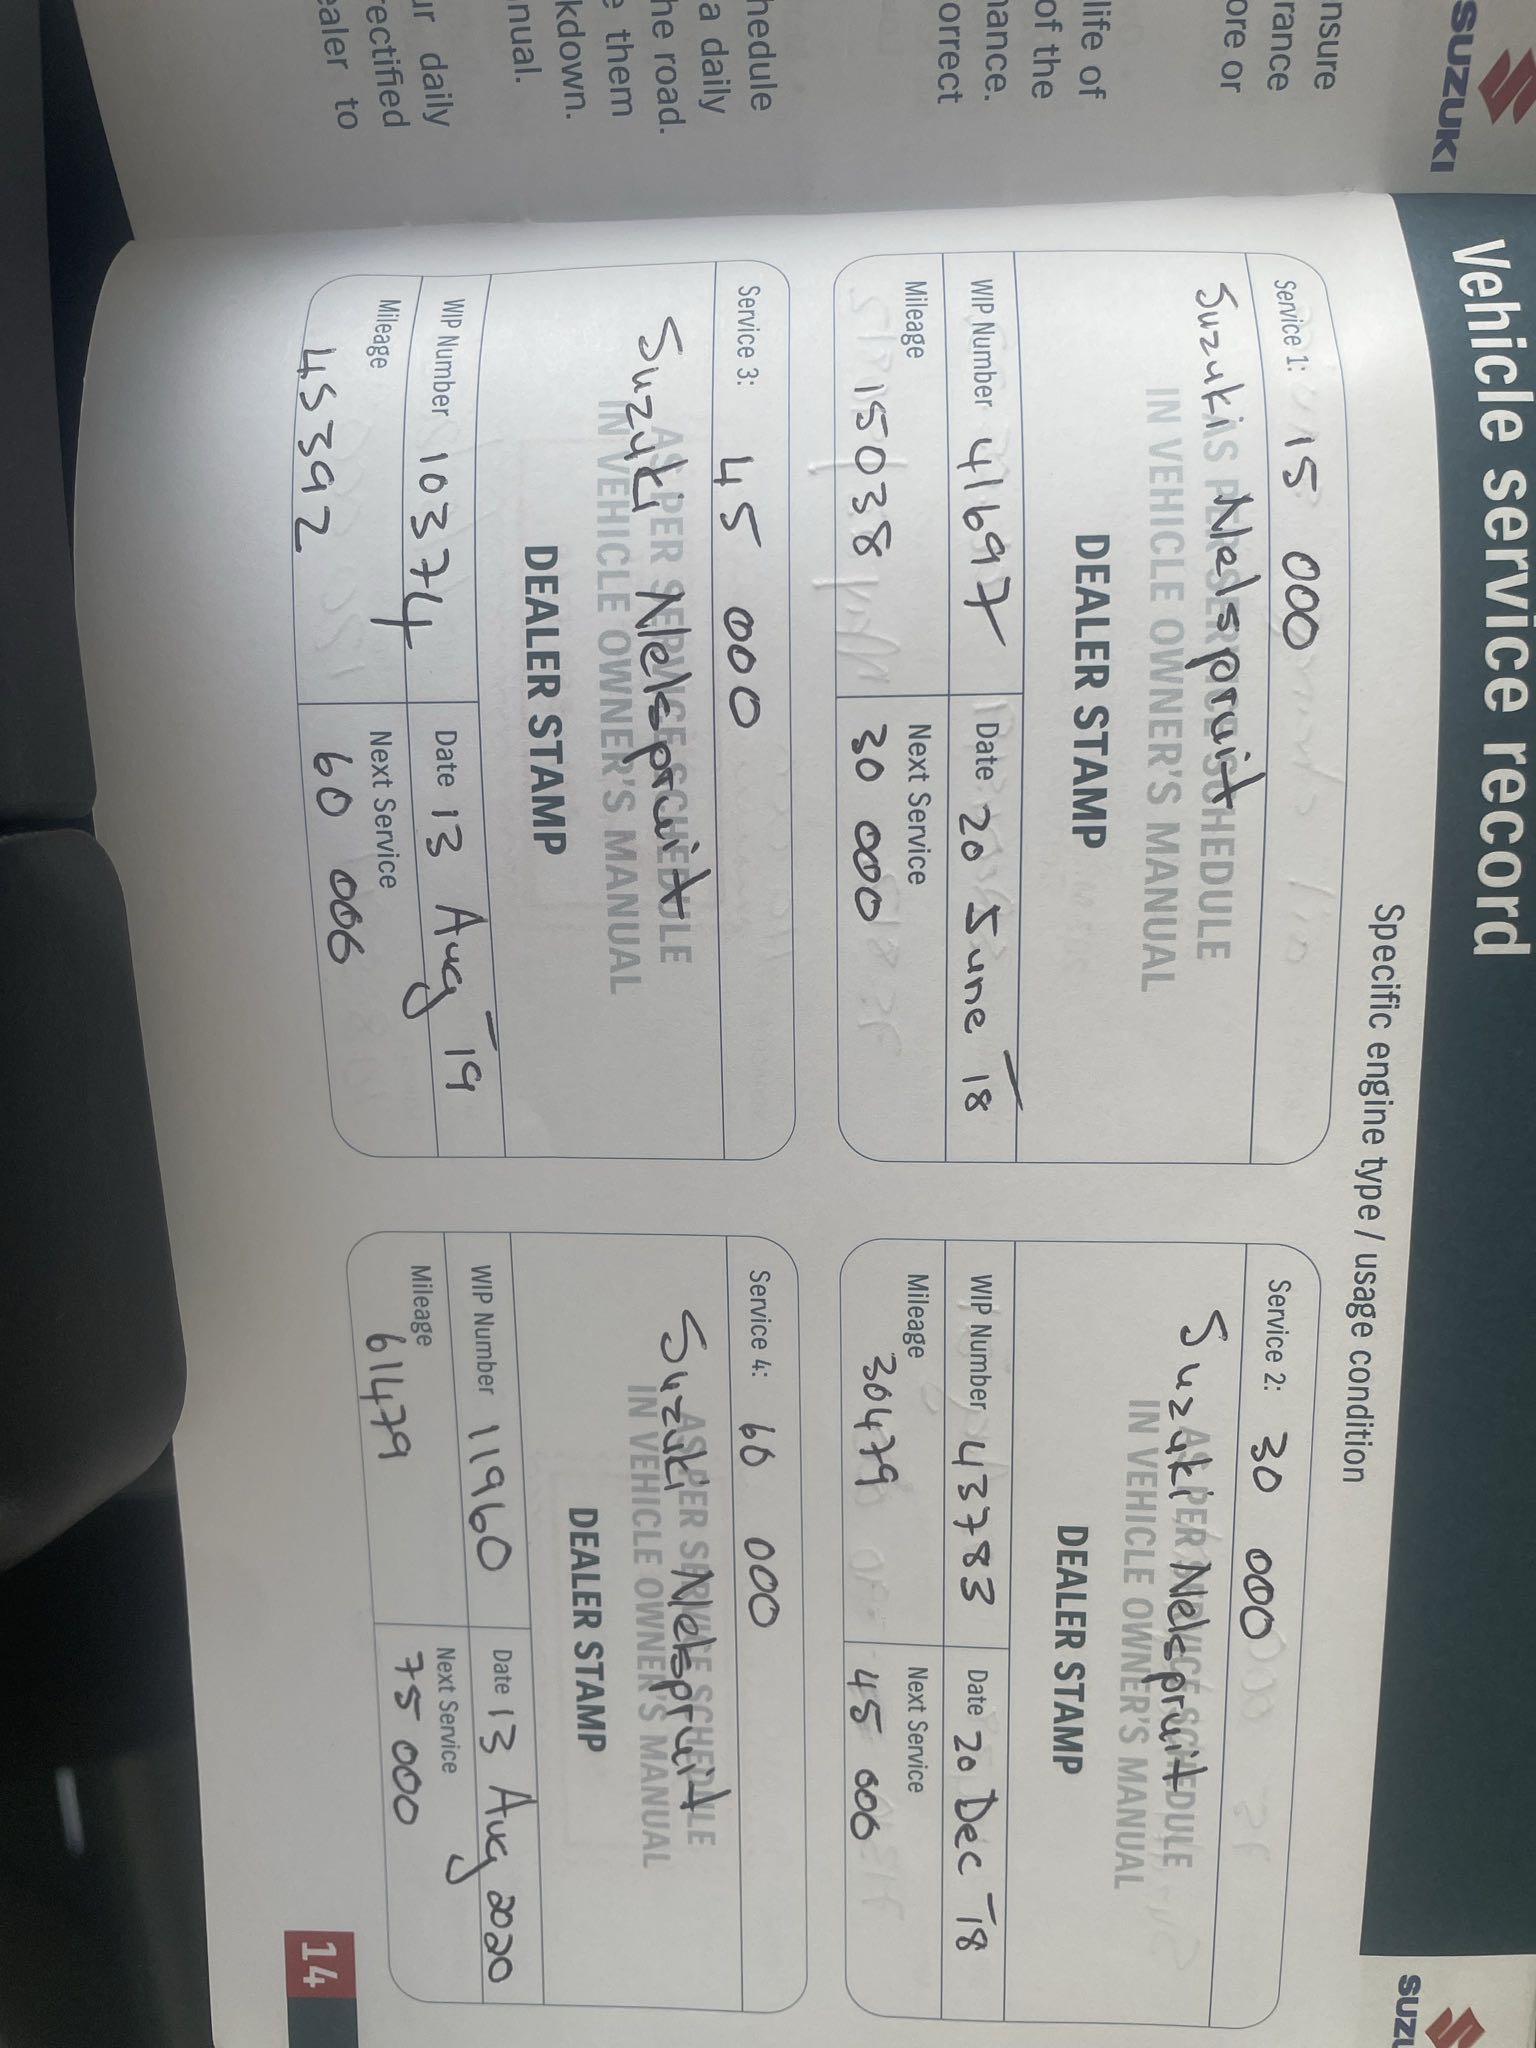 nsure
rance
ore or
life of
of the
nance.
orrect
hedule
a daily
he road.
e them
kdown.
nual.
ur daily
rectified
ealer to
SUZUKI
Vehicle service record
SUZU
Specific engine type / usage condition
Service 1: 15 000
Suzuki Nelspruit
AS PER SERVICE SCHEDULE
IN VEHICLE OWNER'S MANUAL
DEALER STAMP
WIP Number 41697
Date 20 June 18
Mileage 15038
Next Service 30 000
Service 2: 30 000
Suzuki Nelspruit
AS PER SERVICE SCHEDULE
IN VEHICLE OWNER'S MANUAL
DEALER STAMP
WIP Number 43783
Date 20 Dec 18
Mileage 30479
Next Service 45 000
Service 3: 45 000
Suzuki Nelspruit
AS PER SERVICE SCHEDULE
IN VEHICLE OWNER'S MANUAL
DEALER STAMP
WIP Number 10374
Date 13 Aug 19
Mileage 45392
Next Service 60 000
Service 4: 60 000
Suzuki Nelspruit
AS PER SERVICE SCHEDULE
IN VEHICLE OWNER'S MANUAL
DEALER STAMP
WIP Number 11960
Date 13 Aug 2020
Mileage 61479
Next Service 75 000
14